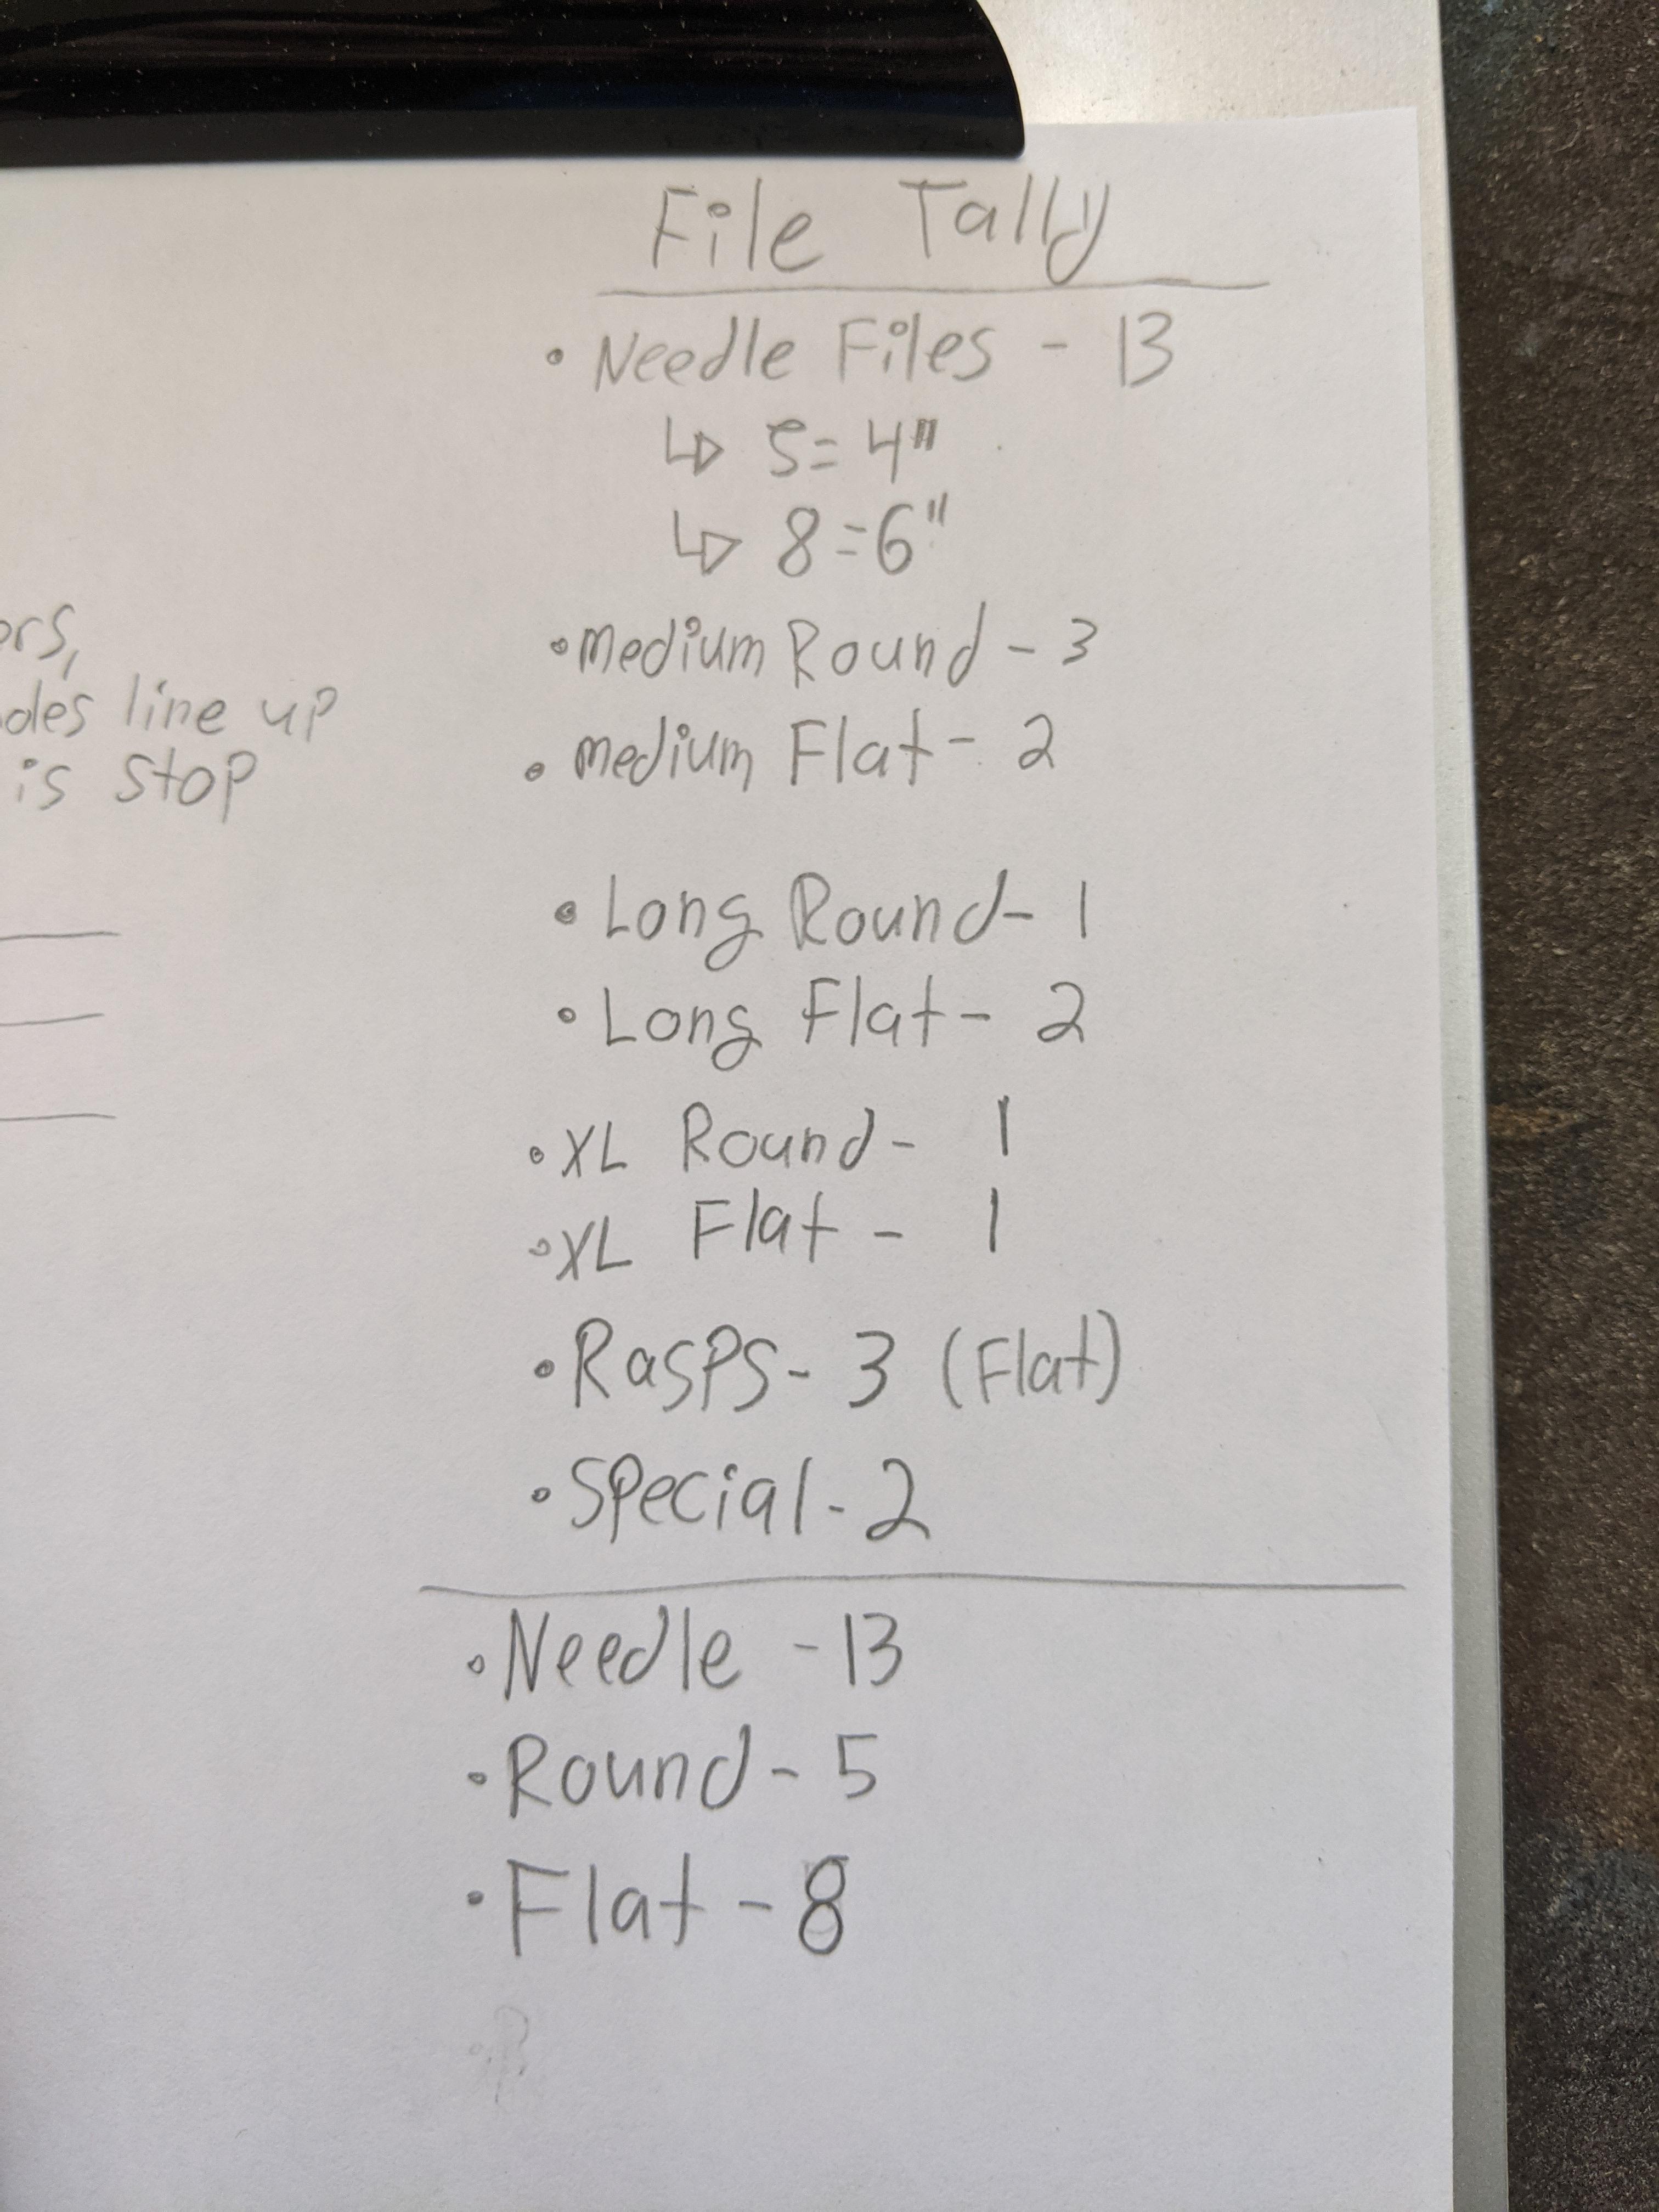 File Tally
• Needle Files - 13
↳ 5 = 4"
↳ 8 = 6"
• medium Round - 3
• medium Flat - 2
• Long Round - 1
• Long Flat - 2
• XL Round - 1
• XL Flat - 1
• Rasps - 3 (Flat)
• Special - 2
• Needle - 13
• Round - 5
• Flat - 8
line up
is stop